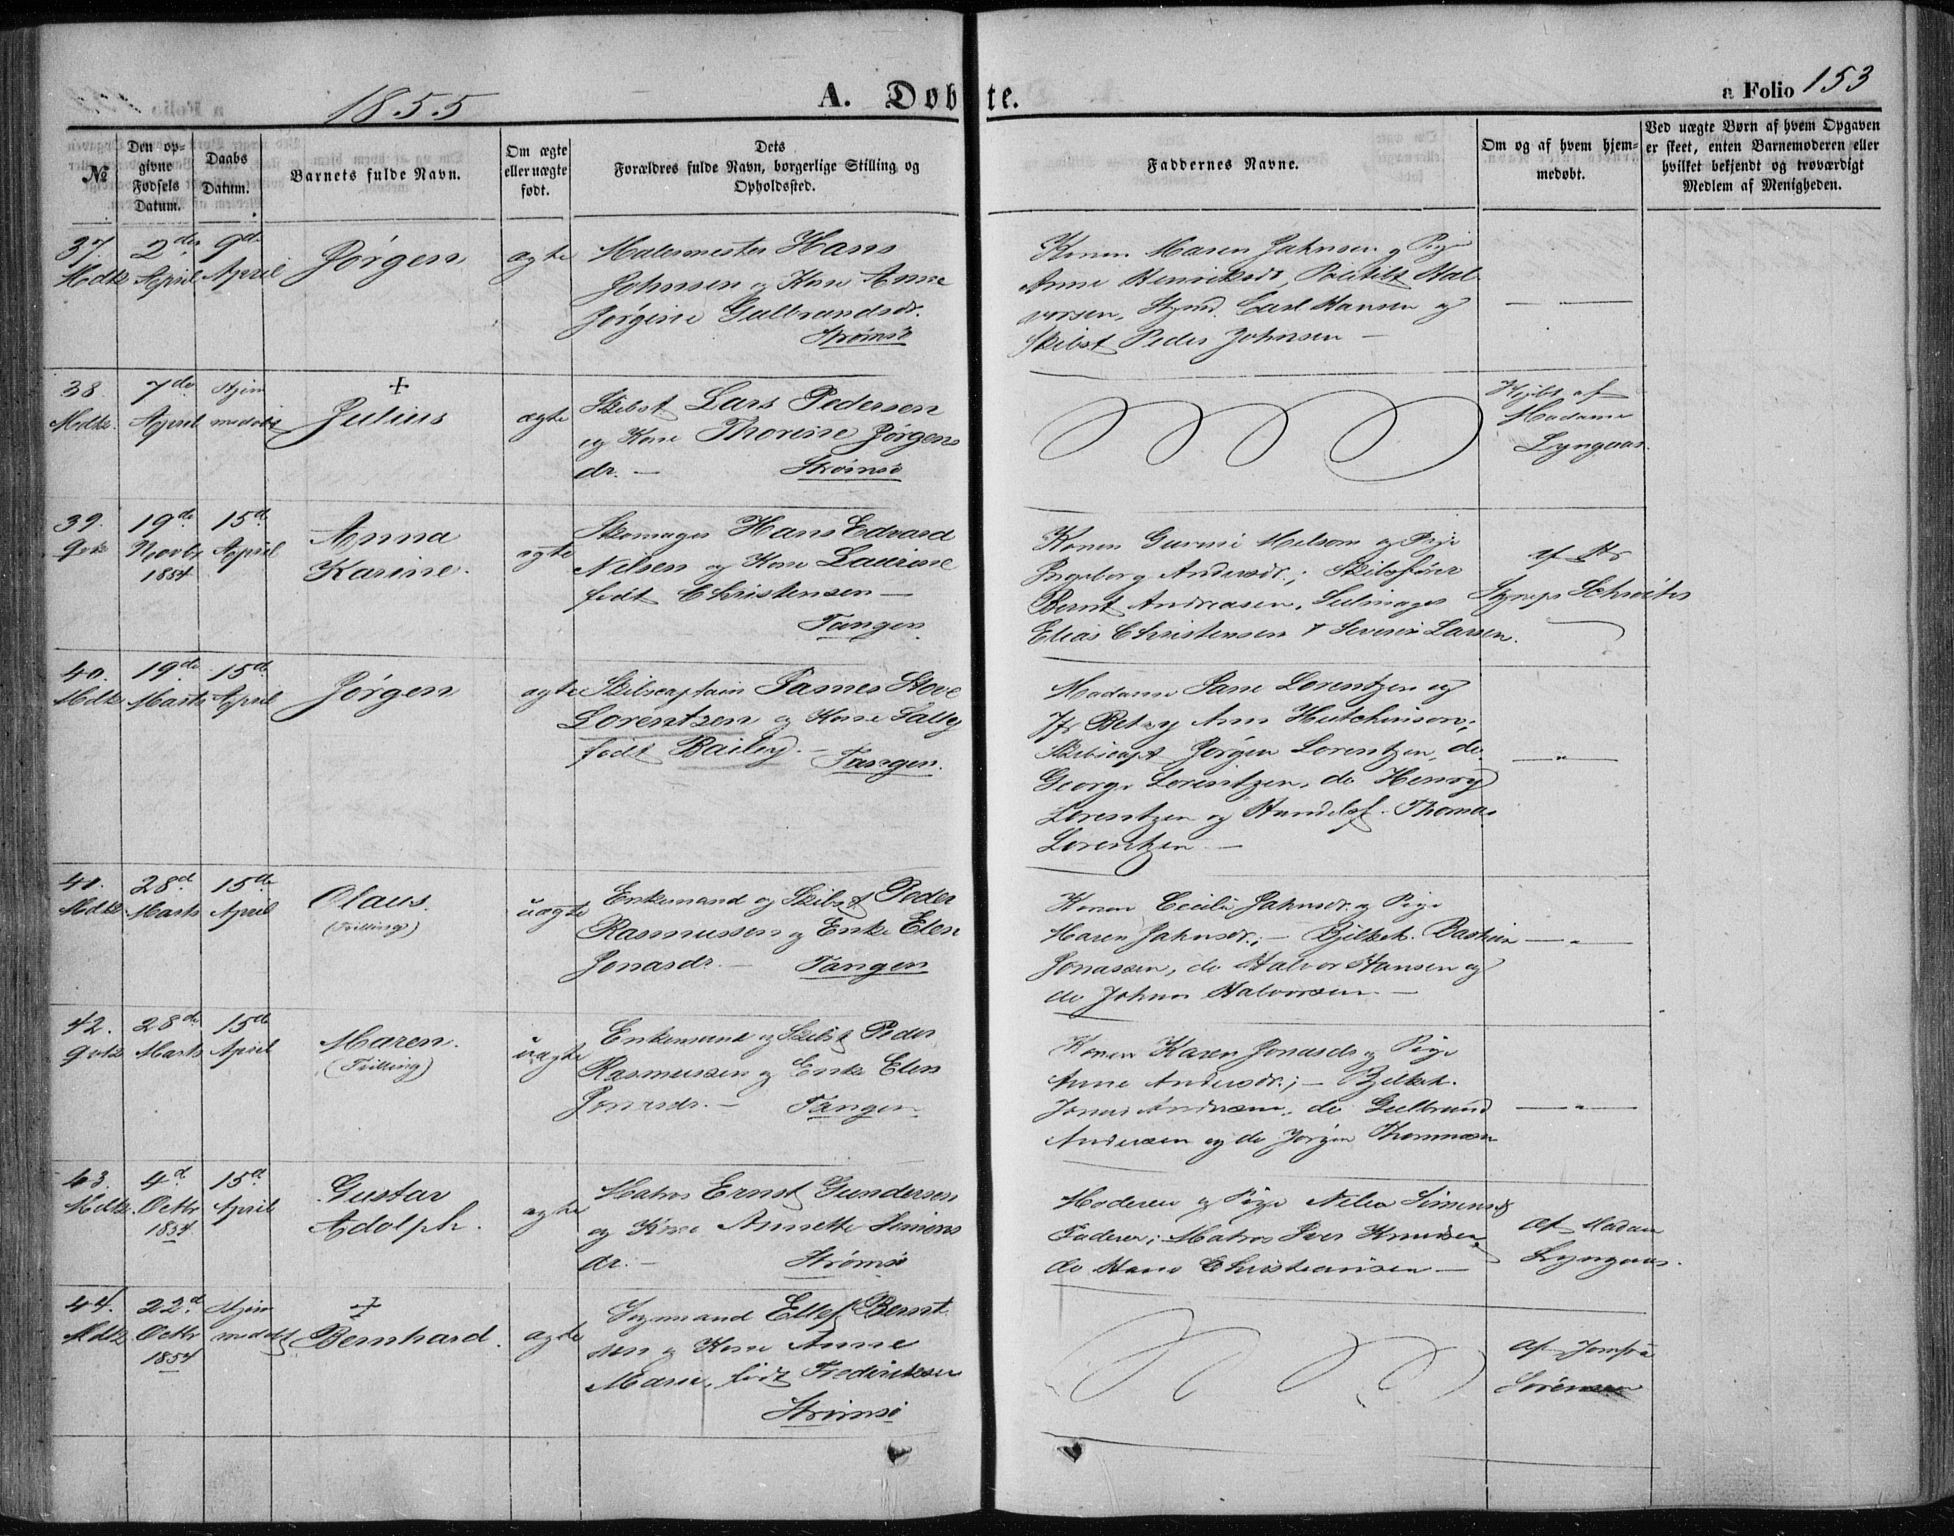 1855
A. Døbte.
a Folio 153
№
Den opgivne Fødsels Datum.
Daabs Datum.
Barnets fulde Navn.
Om ægte eller uægte født.
Dets Forældres fulde Navn, borgerlige Stilling og Opholdssted.
Faddernes Navne.
Om og af hvem hjemmedøbt.
Ved uægte Børn af hvem Opgaven er skeet, enten Barnemoderen eller hvilket bekjendt og troværdigt Medlem af Menigheden.
37. 2de 9de
Mdk. April April
Jørgen
ægte
Malermester Hans
Johnsen og Kone Anne
Jørgine Gulbrandsdr.
Strømsö
Konen Maren Jahnsen og Pige
Anne Henriksdr, Politibt Hal
vorsen, Styrmd. Carl Hansen og
Skibst Peder Johnsen —
38. 7de Hjem
Mdk. April meddøbt
+
Julius
ægte
Skibst Lars Pedersen
og Kone Thorine Jørgens
dr. — Strömsö
Hjdbt af
Madame
Lyngaas
39. 19de 15de
Qvk Novbr April
1854
Anna
Karine.
ægte
Skomager Hans Edvard
Nilsen og Kone Laurine
født Christensen —
Tangen
Konen Gurine Melsom og Pige
Ingeborg Andersdr.; Skibsfører
Bernt Andreasen, Seilmager
Elias Christensen & Severin Larsen.
af Hr
Schrøter
40. 19de 15de
Mdk Marts April
Jørgen
ægte
Skibscaptain James Stove
Lorentzen og Kone Sally
født Bailey. — Tangen.
Madame Jane Lorentzen og
Jfr Betsy Ann Hutchinson;
Skibscapt Jörgen Lorentzen, do
George Lorentzen, do Henry
Lorentzen og Handelsf. Thomas
Lorentzen —
41. 28d 15de
Mdk Marts April
Olaus.
(Tvilling)
uægte
Enkemand og Skibst Peder
Rasmussen og Enke Elen
Jonasdr. — Tangen
Konen Cecilie Jahnsdr. og Pige
Maren Jahnsdr.; — Bjelkeh. Bastian
Jonassen, do Halvor Hansen og
do Johan Halvorsen. —
42. 28de 15de
Qvk Marts April
Maren.
(Tvilling)
uægte
Enkemand og Skibst Peder
Rasmussen og Enke Elen
Jonasdr. — Tangen
Konen Karen Jonasdr og Pige
Anne Andersdr.; — Bjelkeh.
Jonas Andersen, do Gulbrand
Andersen og do Jörgen Thommesen
43. 4d 15d
Mdk. Octbr April
1854
Gustav
Adolph.
ægte
Matros Ernst Gundersen
og Kone Annette Simons
dr. — Strømsö
Moderen og Pige Nilea Simonsd
Faderen; Matros Iver Knudsen,
do Hans Christiansen —
af Madam
Lyngaas.
44. 22d. Hjem
Mdk Octbr meddøbt
1854
+
Bernhard.
ægte
Styrmand Ellef Bernt
sen og Kone Anne
Marie, født Frederiksen
Strømsö
af Jomfru
Sørensen